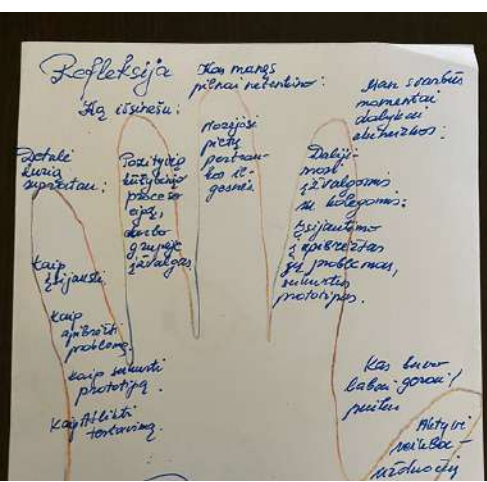 Refleksija
Ką išsinešu:
Kas manęs
pilnai netenkino:
Man svarbūs
momentai
dalykai
akcentas:
Detalė
kurią
supratau:
kaip
įsijausti.
kaip
apibrėžti
problemą.
kaip sukurti
prototipą.
Kaip Atlikti
testavimą.
Pozityvią
kūrybinio
proceso
eigą,
darbo
grupėje
įžvalgas
Norėjosi
pietų
pertrau-
kos il-
gesnės
Daliji-
mosi
įžvalgomis
su kolegomis:
Įsijautimo
į apibrėžtas
problemas,
sukurtus
prototipus.
Kas buvo
labai gerai/
puiku
Aktyvi
veikla –
užduočių